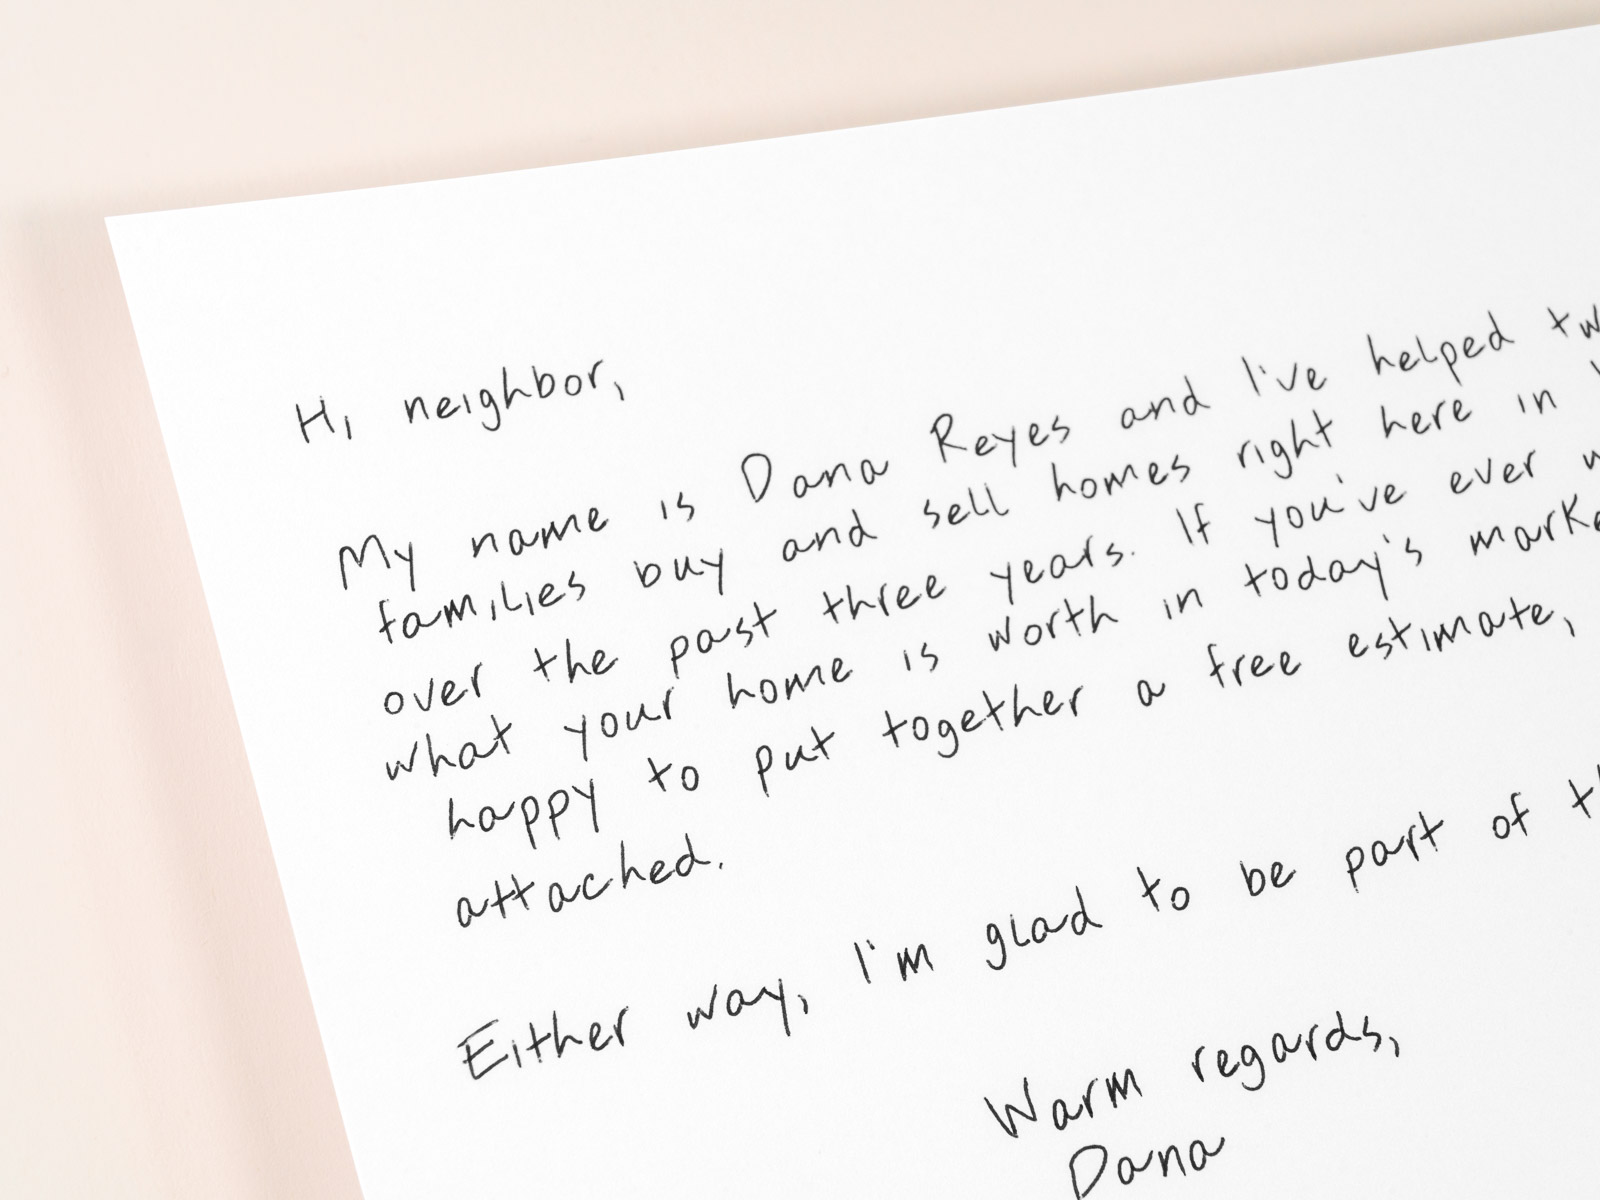 Hi neighbor,
My name is Dana Reyes and I've helped
families buy and sell homes right here in
over the past three years. If you've ever
what your home is worth in today's
happy to put together a free estimate,
attached.
Either way, I'm glad to be part of
Warm regards,
Dana